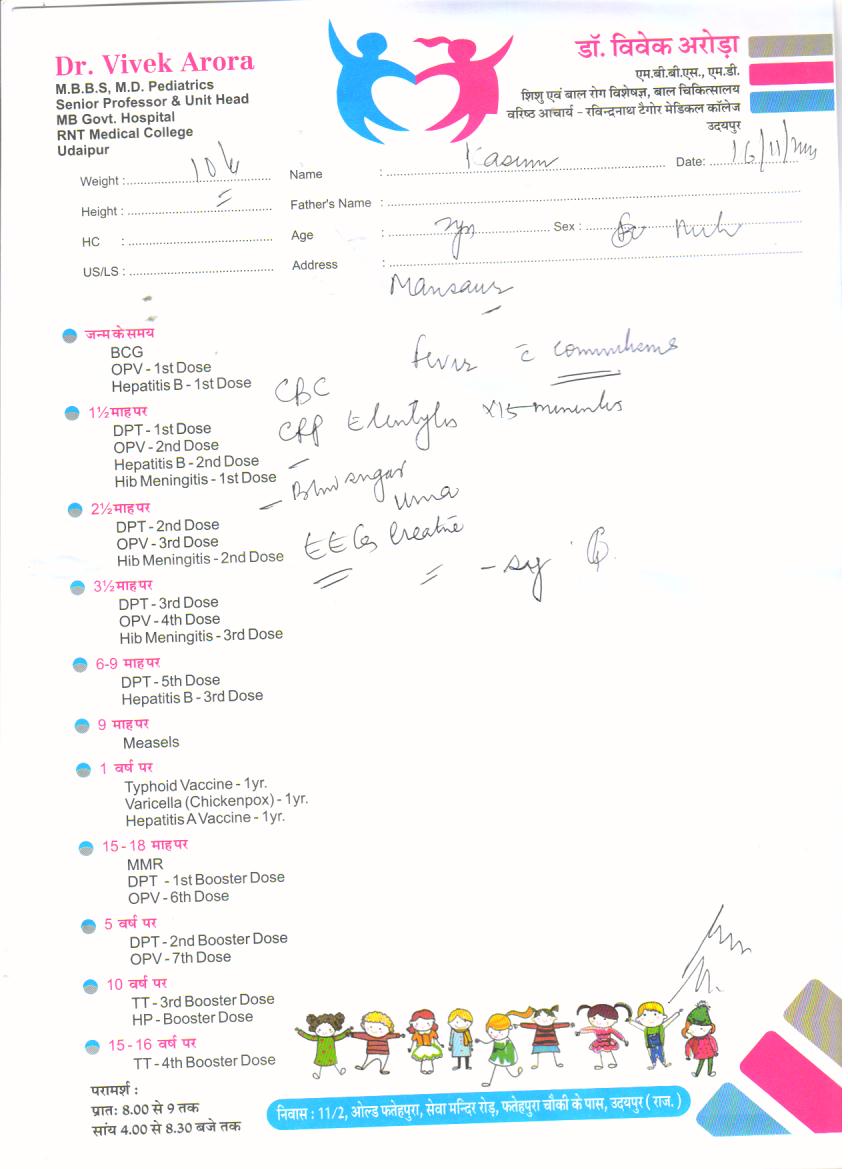 Dr. Vivek Arora
M.B.B.S, M.D. Pediatrics
Senior Professor & Unit Head
MB Govt. Hospital
RNT Medical College
Udaipur
डॉ. विवेक अरोड़ा
एम.बी.बी.एस., एम.डी.
शिशु एवं बाल रोग विशेषज्ञ, बाल चिकित्सालय
वरिष्ठ आचार्य - रविन्द्रनाथ टैगोर मेडिकल कॉलेज
उदयपुर
Weight : 10 Name : Date: 16/11/
Height : Father's Name :
HC : Age : Sex :
US/LS : Address :
Mansaur
जन्म के समय
BCG
OPV - 1st Dose
Hepatitis B - 1st Dose
fever c
CBC
1½ माह पर
DPT - 1st Dose
OPV - 2nd Dose
Hepatitis B - 2nd Dose
Hib Meningitis - 1st Dose
CRP x15
2½ माह पर
DPT - 2nd Dose
OPV - 3rd Dose
Hib Meningitis - 2nd Dose
Blood sugar
EEG
3½ माह पर
DPT - 3rd Dose
OPV - 4th Dose
Hib Meningitis - 3rd Dose
6-9 माह पर
DPT - 5th Dose
Hepatitis B - 3rd Dose
9 माह पर
Measels
1 वर्ष पर
Typhoid Vaccine - 1yr.
Varicella (Chickenpox) - 1yr.
Hepatitis A Vaccine - 1yr.
15 - 18 माह पर
MMR
DPT - 1st Booster Dose
OPV - 6th Dose
5 वर्ष पर
DPT - 2nd Booster Dose
OPV - 7th Dose
10 वर्ष पर
TT - 3rd Booster Dose
HP - Booster Dose
15-16 वर्ष पर
TT - 4th Booster Dose
परामर्श :
प्रातः 8.00 से 9 तक
सांय 4.00 से 8.30 बजे तक
निवास : 11/2, ओल्ड फतेहपुरा, सेवा मन्दिर रोड़, फतेहपुरा चौकी के पास, उदयपुर ( राज. )